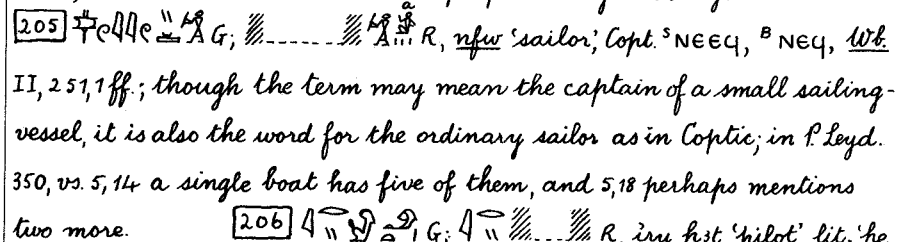 205 G; R, nfw 'sailor', Copt. ˢ ⲛⲉⲉϥ, ᴮ ⲛⲉϥ, Wb.
II, 251,1 ff.; though the term may mean the captain of a small sailing-
vessel, it is also the word for the ordinary sailor as in Coptic; in P. Leyd.
350, vs. 5, 14 a single boat has five of them, and 5,18 perhaps mentions
two more. 206 G; R, iry ḥꜣt 'pilot' lit. 'he